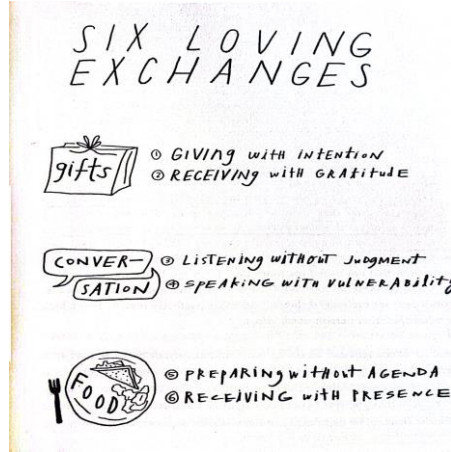 SIX LOVING
EXCHANGES
gifts
① GIVING with INTENTION
② RECEIVING with GRAtitudE
CONVER-
SATION
③ LISTENING WITHOUT JUDGMENT
④ SPEAKING WITH VULNERABILITY
FOOD
⑤ PREPARING without AGENDA
⑥ RECEIVING with PRESENCE